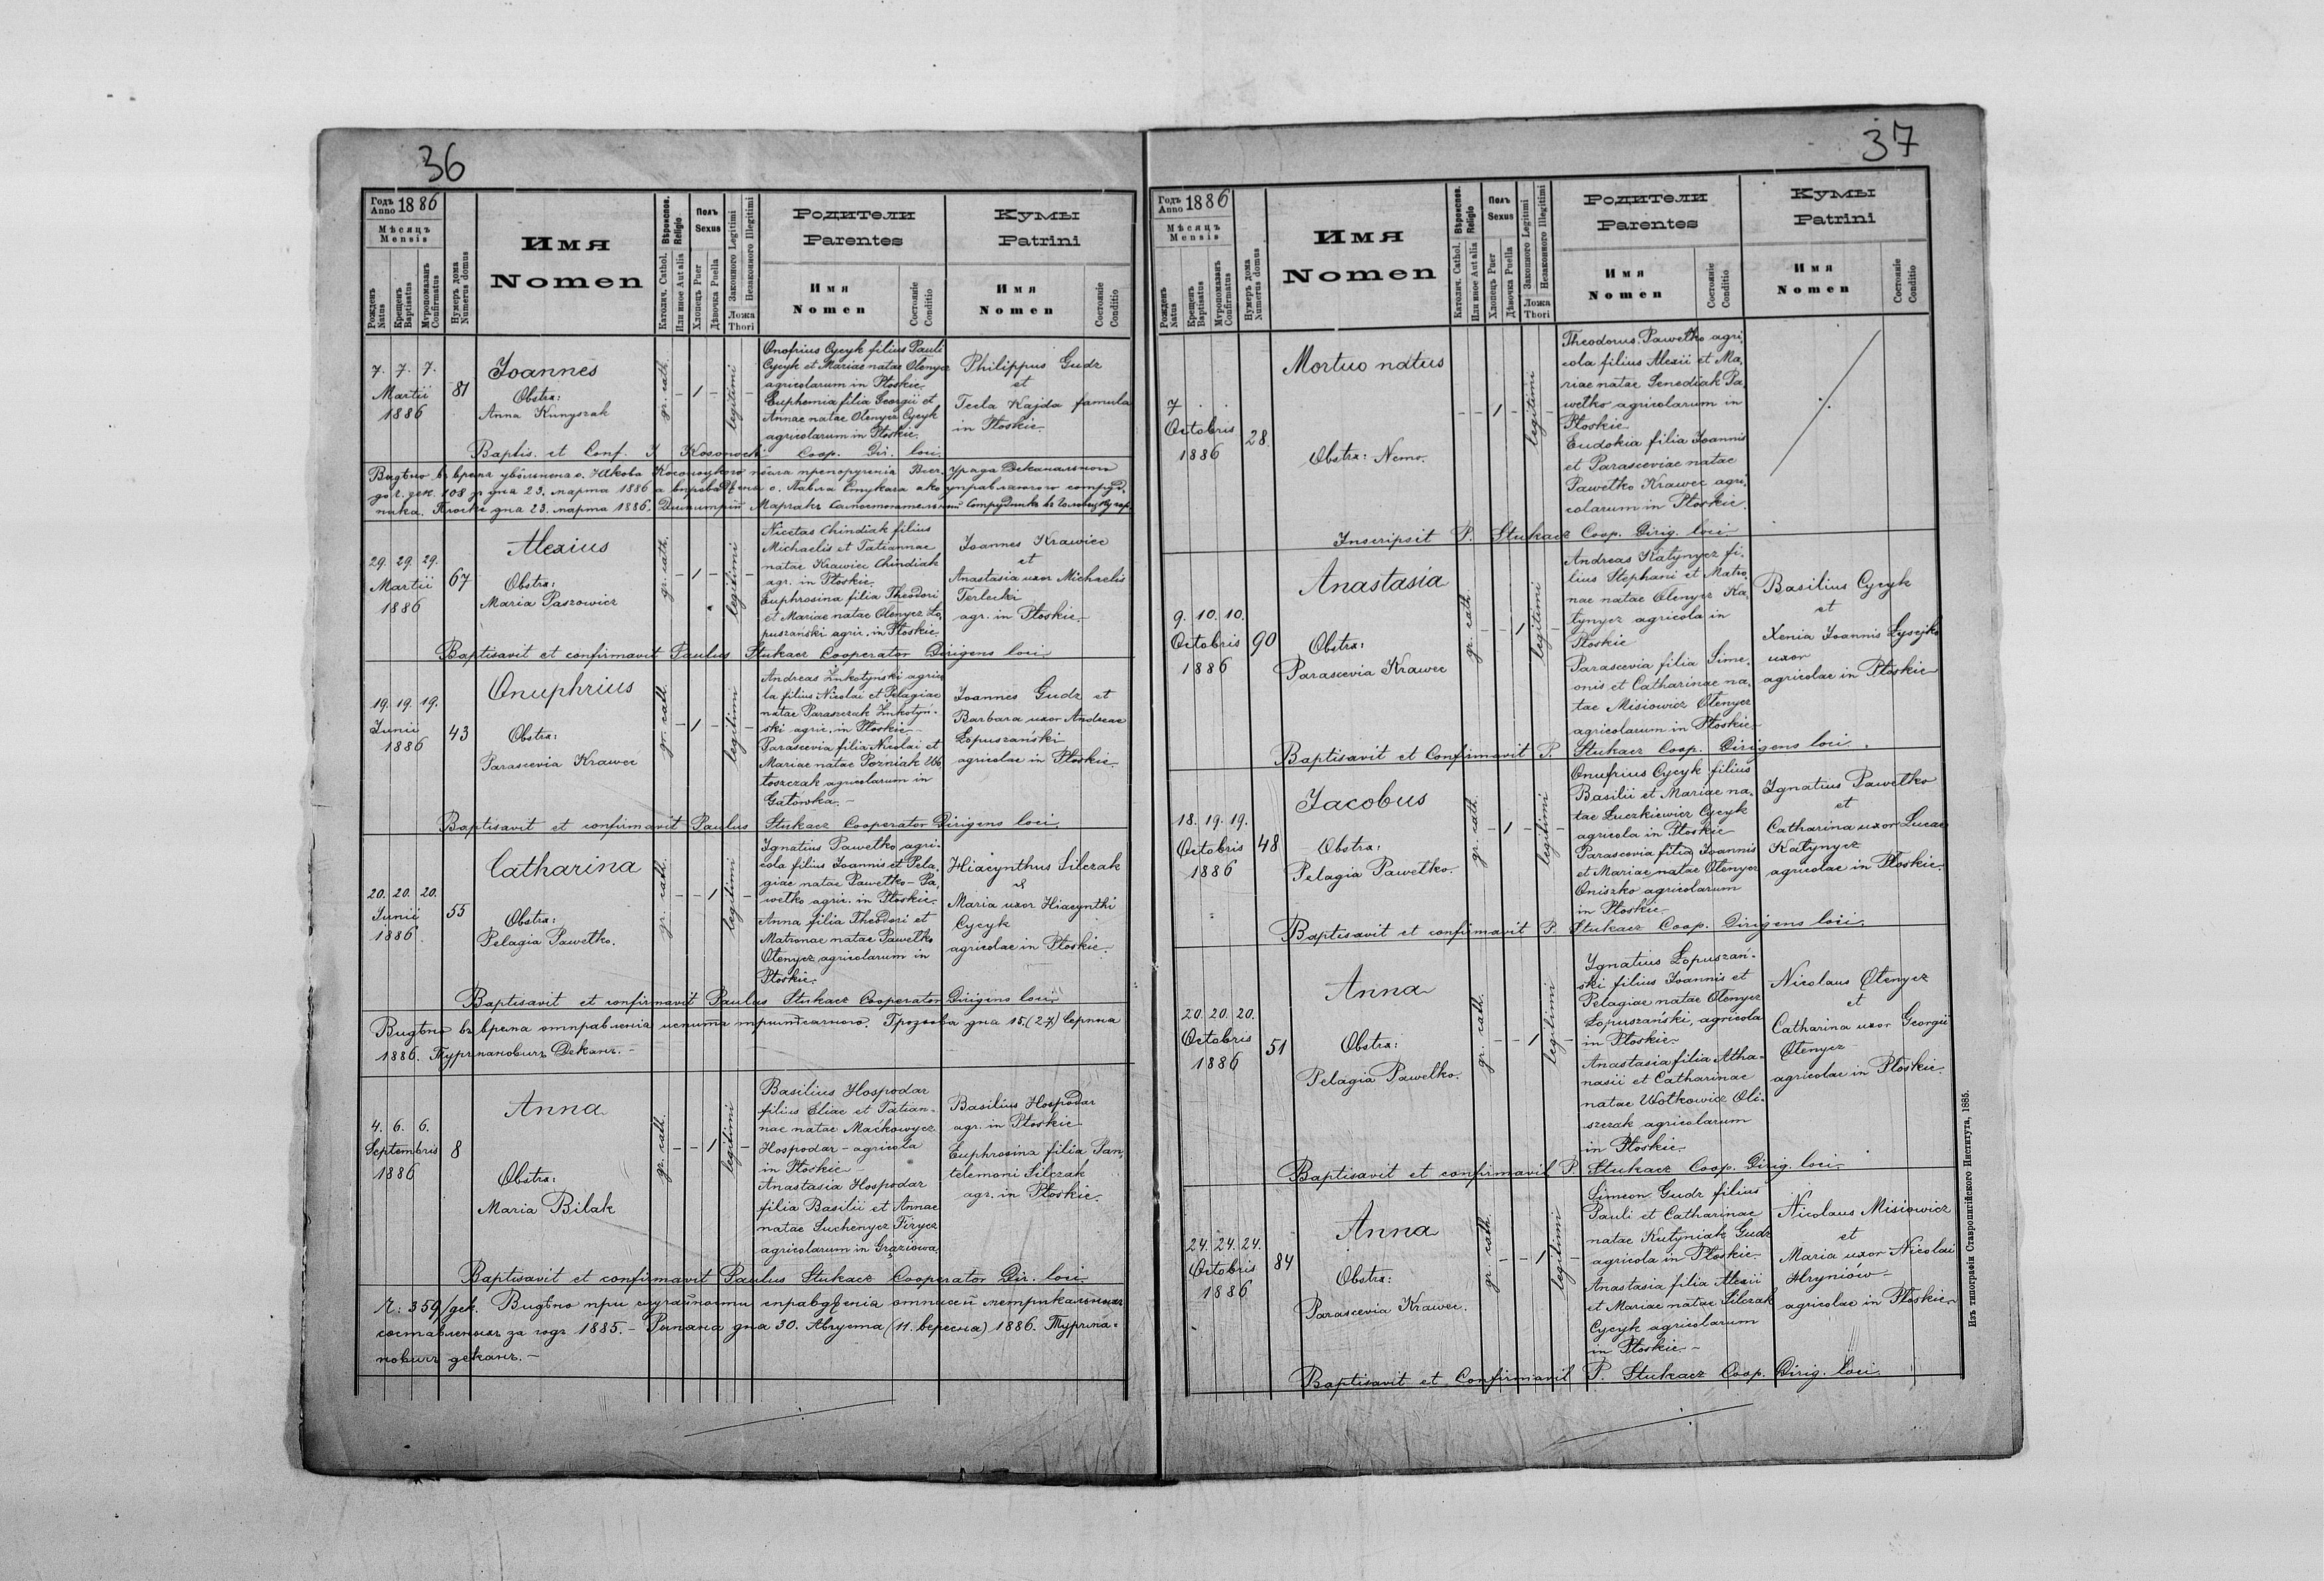 36
Годъ Anno 1886
Мѣсяцъ
Mensis
Рожденъ Natus
Крещенъ Baptisatus
Мѵропомазанъ Confirmatus
Нумеръ дома Numerus domus
Имя
Nomen
Вѣроиспов. Religio
Католич. Cathol.
Или иное Aut alia
Полъ
Sexus
Хлопецъ Puer
Дѣвочка Puella
Законного Legitimi
Незаконного Illegitimi
Ложа
Thori
Родители
Parentes
Имя
Nomen
Состояніе
Conditio
Кумы
Patrini
Имя
Nomen
Состояніе
Conditio
7. 7. 7.
Martii
1886
81
Joannes
Obstx:
Anna Kunyszak
gr. cath.
- 1 - legitimi -
Onofrius Cycyk filius Pauli
Cycyk et Mariae natae Olenycz
agricolarum in Płoskie.
Euphemia filia Georgii et
Annae natae Olenycz Cycyk
agricolarum in Płoskie.
Philippus Gudz
et
Tecla Kajda famula
in Płoskie.
Baptis. et Conf. J Kosonocki Coop. Dir. loci
Видѣно въ время увôльненя о. Якова
до ч. дек. 108 зъ дня 23. марта 1886 а о. Павла Стукача яко
дня 23. марта 1886.
29. 29. 29.
Martii
1886
67
Alexius
Obstx:
Maria Paszowicz
gr. cath.
- 1 - legitimi -
Nicetas Chindiak filius
Michaelis et Tatiannae
natae Krawiec Chindiak
agr. in Płoskie.
Euphrosina filia Theodori
et Mariae natae Olenycz Ło,
puszański agric. in Płoskie
Joannes Krawiec
et
Anastasia uxor Michaelis
Terlecki
agr. in Płoskie.-
Baptisavit et confirmavit Paulus Stukacz Cooperator Dirigens loci.
19. 19. 19.
Junii
1886
43
Onuphrius
Obstx:
Parascevia Krawec
gr. cath.
- 1 - legitimi -
Andreas Żukotyński agrico
la filius Nicolai et Pelagiae
natae Paraszczak Żukotyń-
ski agric. in Płoskie-
Parascevia filia Nicolai et
Mariae natae Pozniak
toszczak agricolarum in
Gałowka.-
Joannes Gudz et
Barbara uxor Andreae
Łopuszański
agricolae in Płoskie.
Baptisavit et confirmavit Paulus Stukacz Cooperator Dirigens loci.
20. 20. 20.
Junii
1886
55
Catharina
Obstx:
Pelagia Pawełko.
gr. cath.
- - 1 legitimi -
Ignatius Pawełko agri-
cola filius Joannis et Pela,
giae natae Pawełko- Pa,
wełko agric. in Płoskie.
Anna filia Theodori et
Matronae natae Pawełko
Olenycz agricolarum in
Płoskie.
Hiacynthus Silczak
&
Maria uxor Hiacynthi
Cycyk
agricolae in Płoskie.-
Baptisavit et confirmavit Paulus Stukacz Cooperator Dirigens loci.
Видѣно въ время отправленія испита Грозьова дня 15.(27) Серпня
1886. Турчмановичъ Деканъ.-
4. 6. 6.
Septembris
1886
8
Anna
Obstx:
Maria Bilak
gr. cath.
- - 1 legitimi -
Basilius Hospodar
filius Eliae et Tatian-
nae natae Maćkowycz
Hospodar - agricola
in Płoskie-
Anastasia Hospodar
filia Basilii et Annae
natae Suchenycz Firycz
agricolarum in Grąziowa
Basilius Hospodar
agr. in Płoskie
Euphrosina filia Pan,
telemoni Silczak
agr. in Płoskie.
Baptisavit et confirmavit Paulus Stukacz Cooperator Dir. loci
Ч: 359/дек. Видѣно при случайности справдженія отписей метрикальныхъ
составленыхъ за годъ 1885.- дня 30. Августа (11. вересня) 1886. Турчма-
новичъ деканъ.-
37
Годъ Anno 1886
Мѣсяцъ
Mensis
Рожденъ Natus
Крещенъ Baptisatus
Мѵропомазанъ Confirmatus
Нумеръ дома Numerus domus
Имя
Nomen
Вѣроиспов. Religio
Католич. Cathol.
Или иное Aut alia
Полъ
Sexus
Хлопецъ Puer
Дѣвочка Puella
Законного Legitimi
Незаконного Illegitimi
Ложа
Thori
Родители
Parentes
Имя
Nomen
Состояніе
Conditio
Кумы
Patrini
Имя
Nomen
Состояніе
Conditio
7 . .
Octobris
1886
28
Mortuo natus
Obstx: Nemo.
- - 1 - legitimi -
Theodorus Pawełko agri,
cola filius Alexii et Ma,
riae natae Senediak Pa
wełko agricolarum in
Płoskie
Eudokia filia Joannis
et Parasceviae natae
Pawełko Krawec agri,
colarum in Płoskie.
Inscripsit P. Stukacz Coop. Dirig. loci
9. 10. 10.
Octobris
1886
90
Anastasia
Obstx:
Parascevia Krawec
gr. cath.
- - 1 legitimi -
Andreas Katynycz fi-
lius Stephani et Matro,
nae natae Olenycz Ka,
tynycz agricola in
Płoskie
Parascevia filia Sime,
onis et Catharinae na,
tae Misiowicz Olenycz
agricolarum in Płoskie-
Basilius Cycyk
et
Xenia Joannis Łysejko
uxor
agricolae in Płoskie
Baptisavit et Confirmavit P. Stukacz Coop. Dirigens loci.
18. 19. 19.
Octobris
1886
48
Jacobus
Obstx:
Pelagia Pawełko.
gr. cath.
- 1 - legitimi -
Onufrius Cycyk filius
Basilii et Mariae na,
tae Łuczkiewicz Cycyk
agricola in Płoskie
Parascevia filia Joannis
et Mariae natae Olenycz
Oniszko agricolarum
in Płoskie-
Ignatius Pawełko
et
Catharina uxor Lucae
Katynycz
agricolae in Płoskie.
Baptisavit et confirmavit P. Stukacz Coop. Dirigens loci.
20. 20. 20.
Octobris
1886
51
Anna
Obstx:
Pelagia Pawełko.
gr. cath.
- - 1 legitimi -
Ignatius Łopuszań-
ski filius Joannis et
Pelagiae natae Olenycz
Łopuszański, agricola
in Płoskie-
Anastasia filia Atha-
nasii et Catharinae
natae Wołkowicz Oli-
szczak agricolarum
in Płoskie-
Nicolaus Olenycz
et
Catharina uxor Georgii
Olenycz
agricolae in Płoskie.
Baptisavit et confirmavit P. Stukacz Coop. Dirig. loci.
24. 24. 24.
Octobris
1886
84
Anna
Obstx:
Parascevia Krawec.
gr. cath.
- - 1 legitimi -
Simeon Gudz filius
Pauli et Catharinae
natae Kutyniak Gudz
agricola in Płoskie-
Anastasia filia Alexii
et Mariae natae Silczak
Cycyk agricolarum
in Płoskie.-
Nicolaus Misiowicz
et
Maria uxor Nicolai
Hryniów-
agricolae in Płoskie-
Baptisavit et Confirmavit P. Stukacz Coop. Dirig. loci.
Изъ типографіи Ставропигійского Института, 1885.